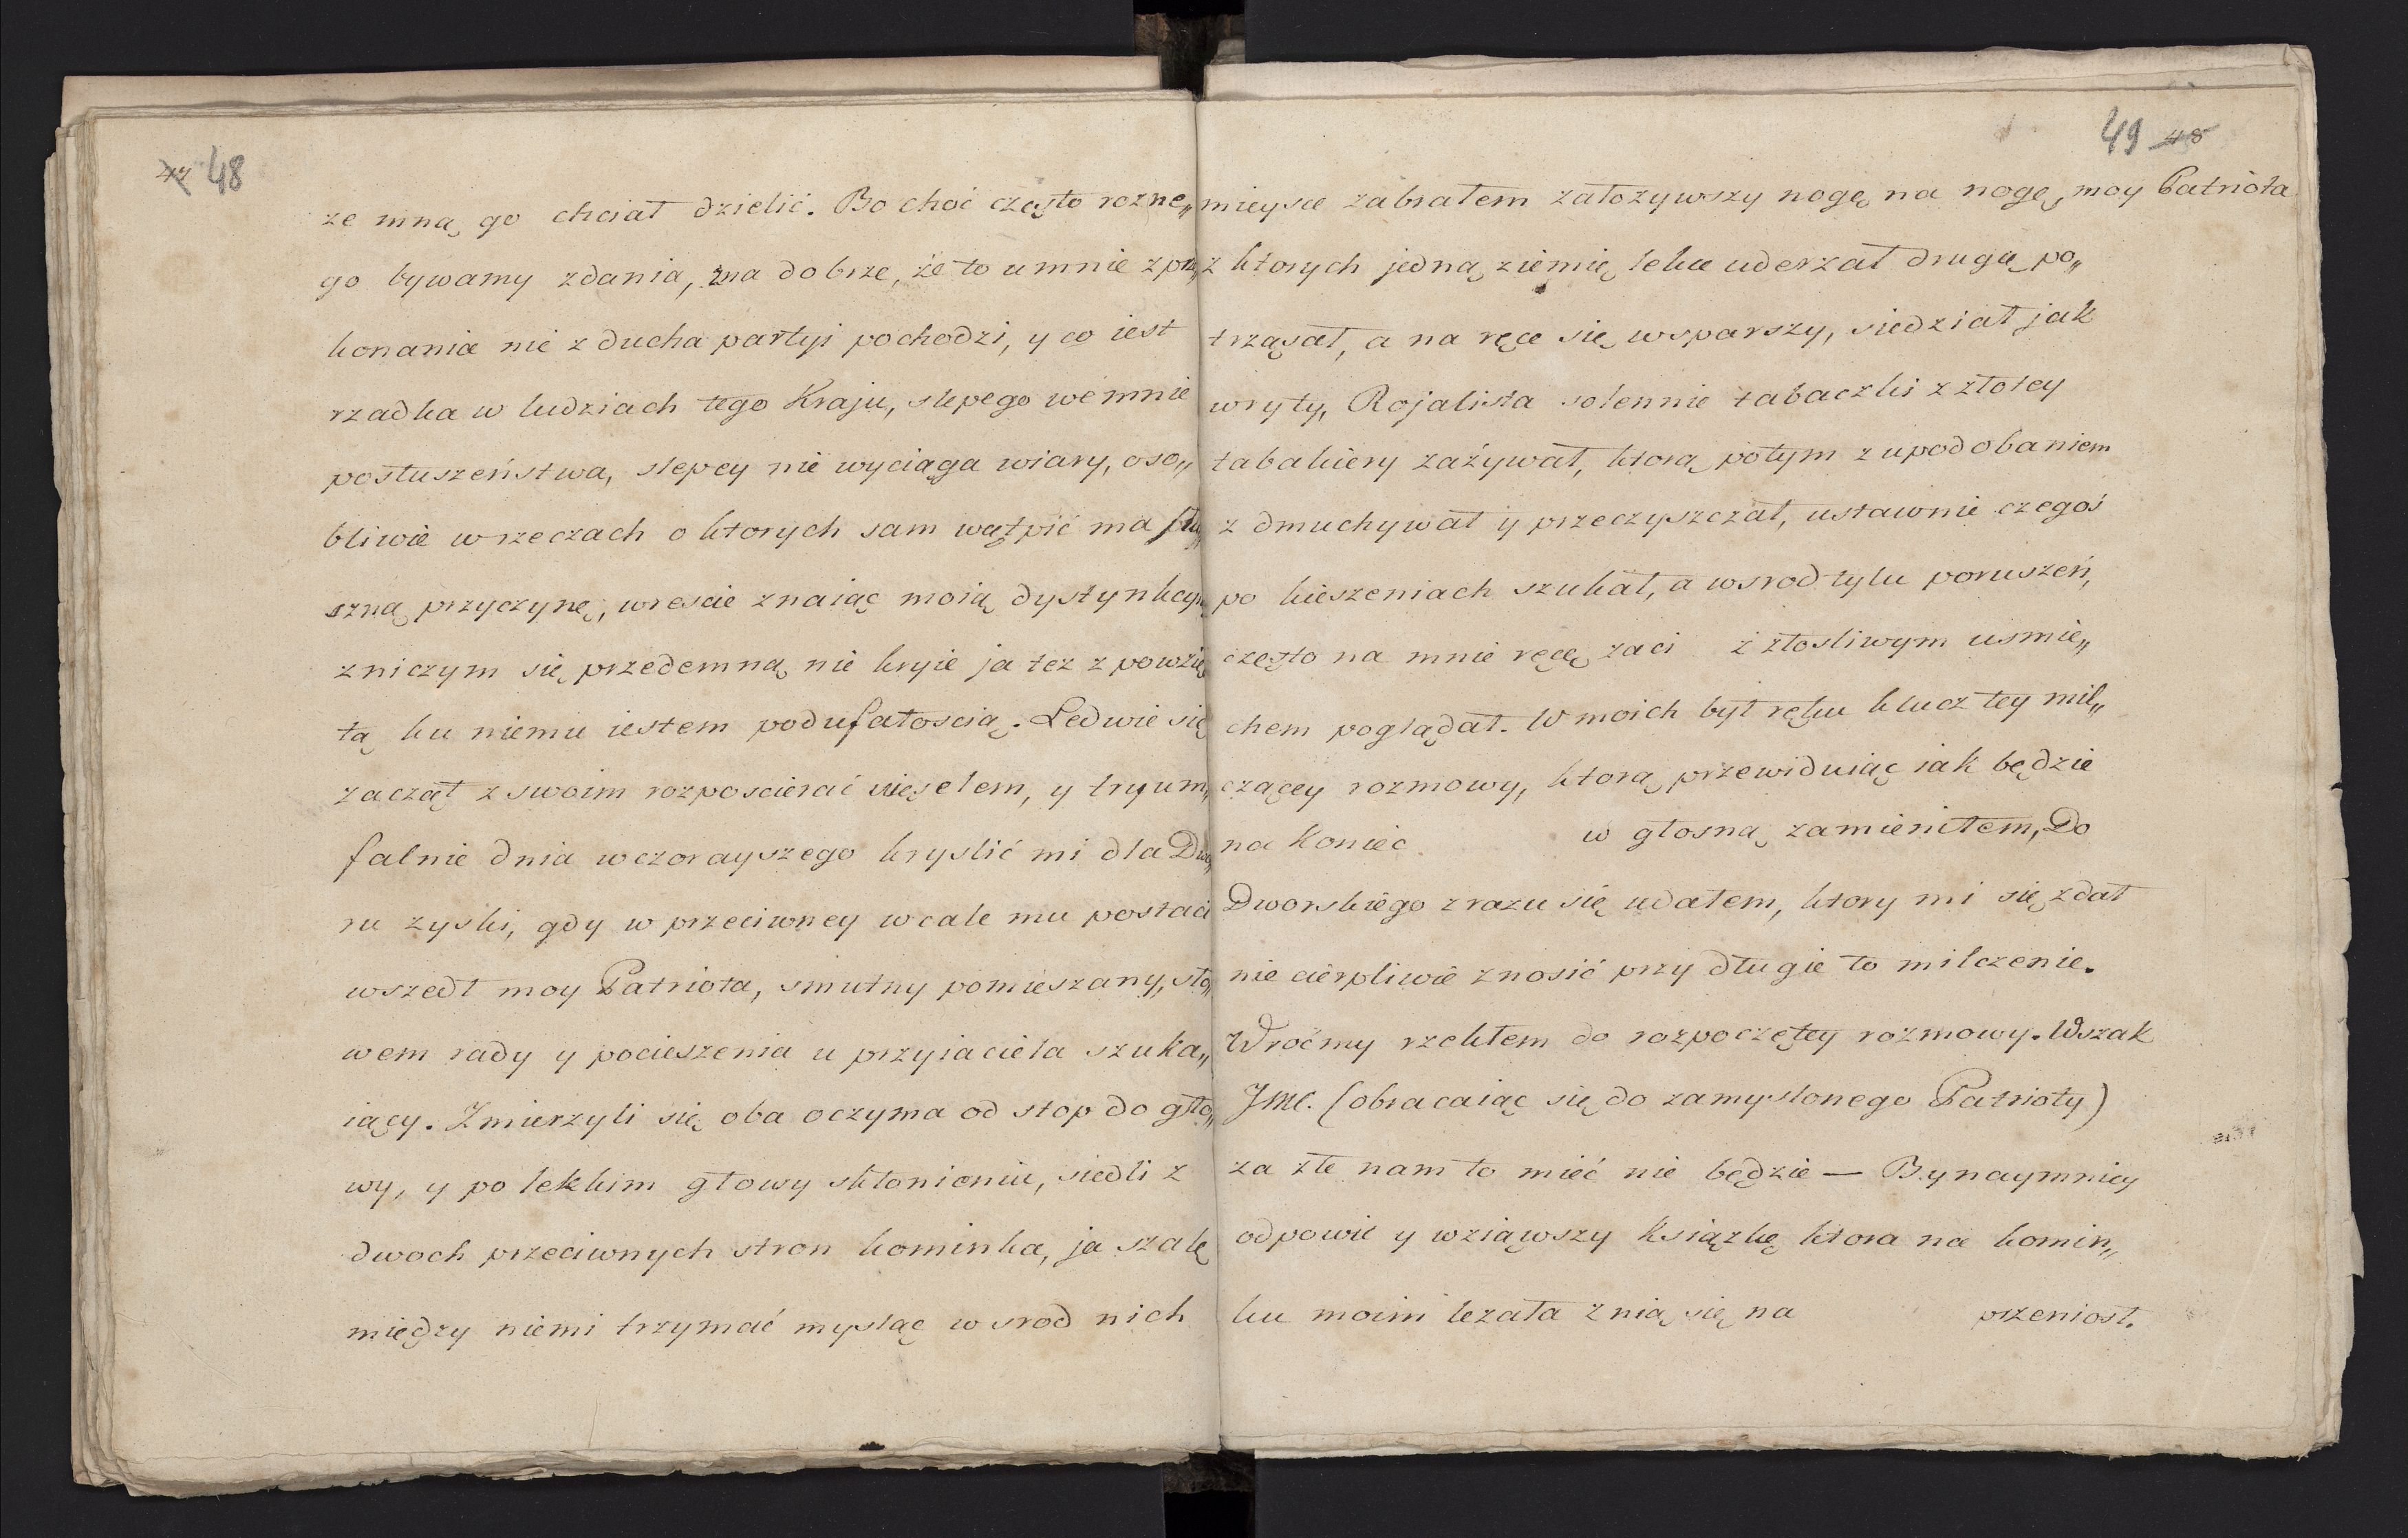 47 48
ze mną go chciał dzielić. Bo choć często rozne„
go bywamy zdania, zna dobrze, że to umnie z prze„
konania nie z ducha partyi pochodzi, y co iest
rzadka w ludziach tego Kraju, slepego wemnie
posłuszeństwa, slepey nie wyciąga wiary, oso„
bliwie w rzeczach o ktorych sam wątpić ma słu„
szną przyczynę, wreście znaiąc moią dystynkcyą
zniczym się przedemną nie kryie ja tez z powzię„
tą ku niemu iestem podufałoscią. Ledwie się
zaczął z swoim rozposcierać weselem, y tryum„
falnie dnia wczorayszego kryslić mi dla Dwo„
ru zyski, gdy w przeciwney wcale mu postaci
wszedł moy Patriota, smutny pomieszany, sło„
wem rady y pocieszenia u przyiaciela szuka„
iący. Zmierzyli się oba oczyma od stop do gło„
wy, y po lekkim głowy skłonieniu, siedli z
dwoch przeciwnych stron kominka, ja szalę
między niemi trzymać mysląc wsrod nich
49 48
mieysce zabrałem załozywszy nogę na nogę, moy Patriota
z ktorych jedną ziemię lekce uderzał drugą po„
trząsał, a na ręce się wsparszy, siedział jak
wryty, Rojalista solennie tabaczki z złotey
tabakiery zażywał, ktorą potym z upodobaniem
z dmuchywał y przeczyszczał, ustawnie czegoś
po kieszeniach szukał, a wsrod tylu poruszeń,
często na mnie ręcę zaci z złosliwym usmie„
chem poglądał. W moich był ręku klucz tey mil„
czącey rozmowy, ktorą przewiduiąc iak będzie
na koniec w głosną zamieniłem, Do
Dworskiego zrazu się udałem, ktory mi się zdał
nie cierpliwie znosić przy długie to milczenie.
Wroćmy rzekłem do rozpoczętey rozmowy. Wszak
JMC. (obracaiąc się do zamyslonego Patrioty)
za złe nam to mieć nie będzie — Bynaymniey
odpowie y wziąwszy Książkę ktora na komin„
ku moim lezała znią się na przeniosł.